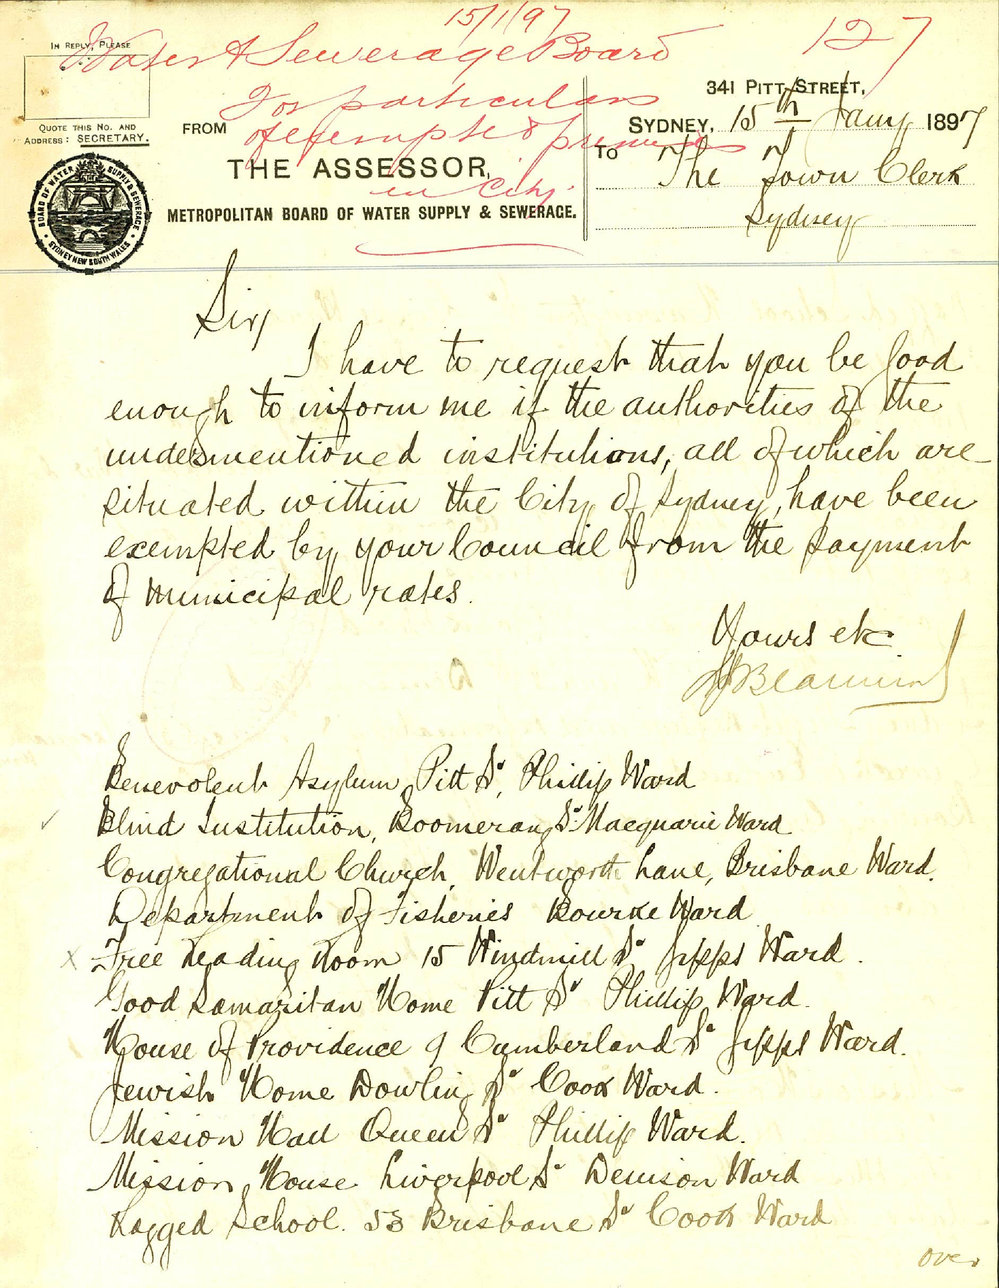 15/1/97
Water & Sewerage Board
127
For particulars
of exempted premises
in City.
IN REPLY, PLEASE
QUOTE THIS NO. AND
ADDRESS: SECRETARY.
BOARD OF WATER SUPPLY & SEWERAGE
SYDNEY NEW SOUTH WALES
FROM
THE ASSESSOR,
METROPOLITAN BOARD OF WATER SUPPLY & SEWERAGE.
341 PITT STREET,
SYDNEY, 15th Jany 1897
TO The Town Clerk
Sydney
Sir,
I have to request that you be good
enough to inform me if the authorities of the
undermentioned institutions, all of which are
situated within the City of Sydney, have been
exempted by your Council from the payment
of municipal rates.
Yours etc.
Benevolent Asylum, Pitt St, Phillip Ward
Blind Institution, Boomerang St. Macquarie Ward
Congregational Church, Wentworth Lane, Brisbane Ward.
Department of Fisheries Bourke Ward
x Free Reading Room 15 Windmill St Gipps Ward.
Good Samaritan Home Pitt St Phillip Ward.
House of Providence 9 Cumberland St Gipps Ward.
Jewish Home Dowling St Cook Ward.
Mission Hall Queen St Phillip Ward.
Mission House Liverpool St Denison Ward
Ragged School. 53 Brisbane St Cook Ward
over